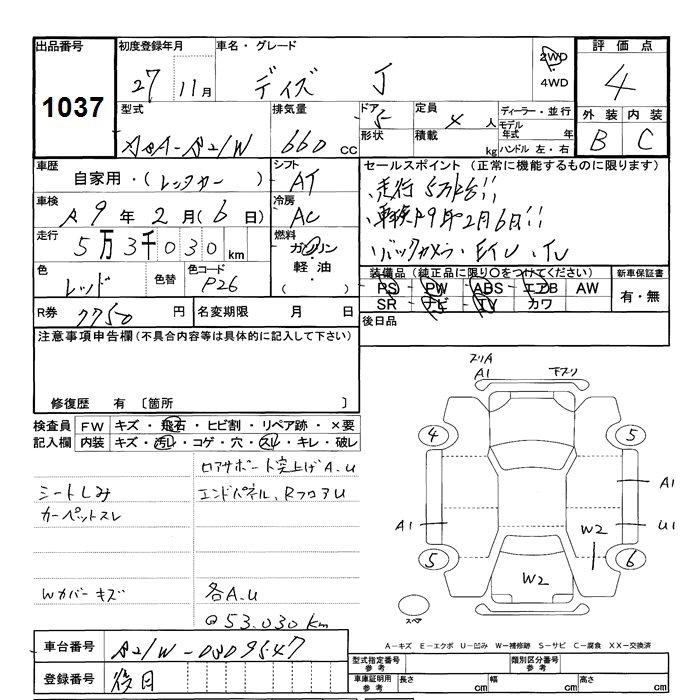 出品番号
1037
初度登録年月
27 11月
車名・グレード
デイズ J
2WD
4WD
評価点
4
外装 内装
B C
型式
B21W
排気量
660 cc
ドア 5
形状
定員 4 人
積載 kg
ディーラー・並行
モデル年式 年
ハンドル 左・右
車歴
自家用・(レンタカー)
シフト
AT
車検
9年 2月(6日)
冷房
AC
走行
5万3千030km
燃料
ガソリン
軽油・
( )
色
レッド
色替
色コード
P26
R券
7750 円
名変期限 月 日
セールスポイント(正常に機能するものに限ります)
走行5万km台!!
車検R9年2月6日!!
バックカメラ・ETC・TV
装備品(純正品に限り○をつけてください)
PS PW ABS エアB AW
SR ナビ TV カワ
新車保証書
有・無
後日品
注意事項申告欄(不具合内容等は具体的に記入して下さい)
修復歴 有 〔箇所 〕
検査員記入欄
FW キズ・飛石・ヒビ割・リペア跡・×要
内装 キズ・汚レ・コゲ・穴・スレ・キレ・破レ
ロアサポート突上げA.U
シートしみ
エンドパネル、RフロアU
カーペットスレ
Wカバーキズ
各A.U
@53.030km
スリA
A1
下スリ
4
5
A1
A1
U1
W2
5
6
W2
スペア
A-キズ E-エクボ U-凹み W-補修跡 S-サビ C-腐食 XX-交換済
車台番号
B21W-0309547
登録番号
後日
型式指定番号
参考
類別区分番号
参考
車庫証明用
参考
長さ cm
幅 cm
高さ cm